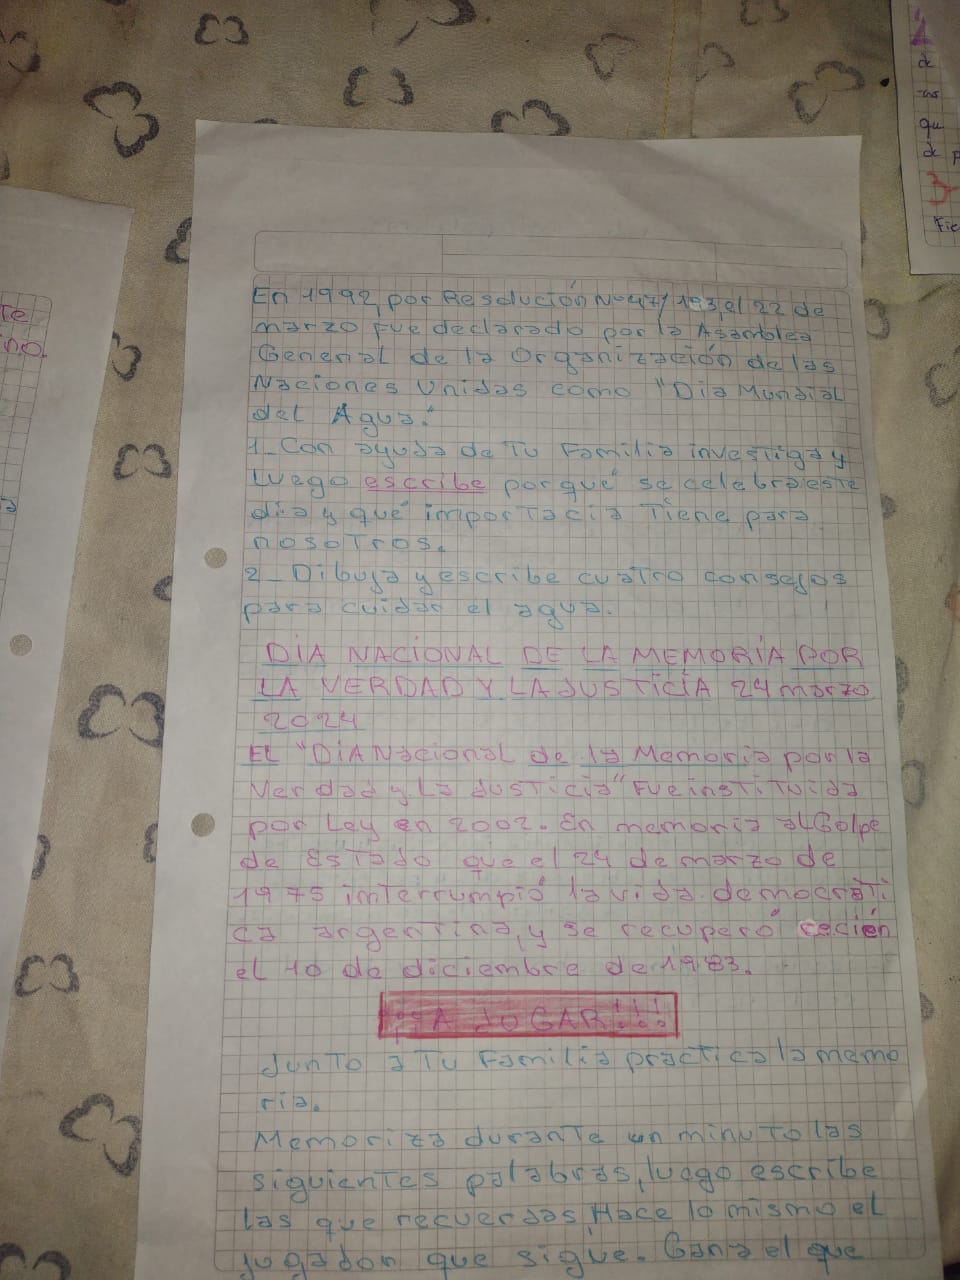 En 1992, por Resolución N°47/193, el 22 de
marzo fue declarado por la Asamblea
General de la Organización de las
Naciones Unidas como "Dia Mundial
del Agua."
1_ Con ayuda de Tu Familia investiga y
luego escribe por qué se celebra este
dia y qué importacia Tiene para
nosotros.
2_ Dibuja y escribe cuatro consejos
para cuidar el agua.
DÍA NACIONAL DE LA MEMORÍA POR
LA VERDAD Y LA JUSTICÍA 24 marzo
2024
EL "DÍA Nacional de la Memoria por la
Verdad y La Justicia" Fue instituida
por Ley en 2002. En memoria al Golpe
de Estado que el 24 de marzo de
1975 interrumpió la vida democráti
ca argentina, y se recuperó recién
el 10 de diciembre de 1983.
A JUGAR!!!
Junto a Tu Familia practica la memo
ria.
Memoriza durante un minuto las
siguientes palabras, luego escribe
las que recuerdas Hace lo mismo el
jugador que sigue. Gana el que
Te
ino.
a
de
qu
de
3
Fic